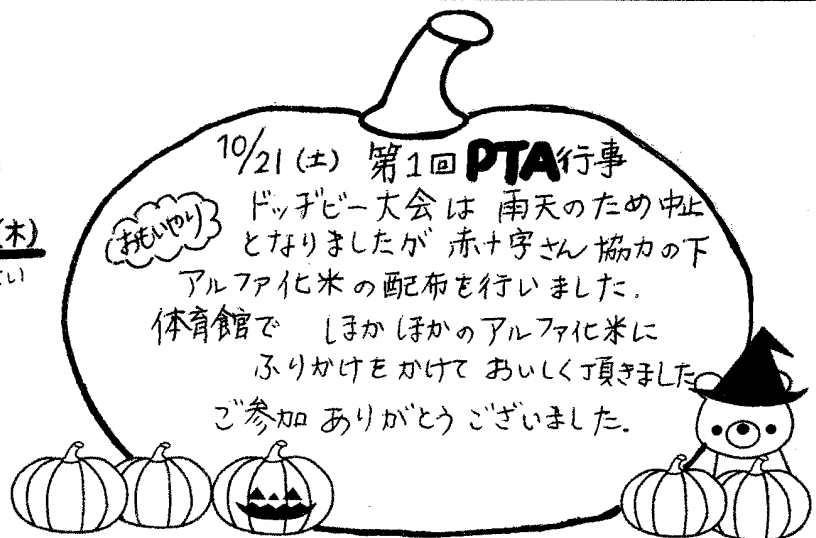 10/21(土) 第1回PTA行事
おもいやり
ドッヂビー大会は 雨天のため中止
となりましたが 赤十字さん協力の下
アルファ化米の配布を行いました.
体育館で ほかほかのアルファ化米に
ふりかけをかけて おいしく頂きました
ご参加ありがとうございました.
(木)
さい